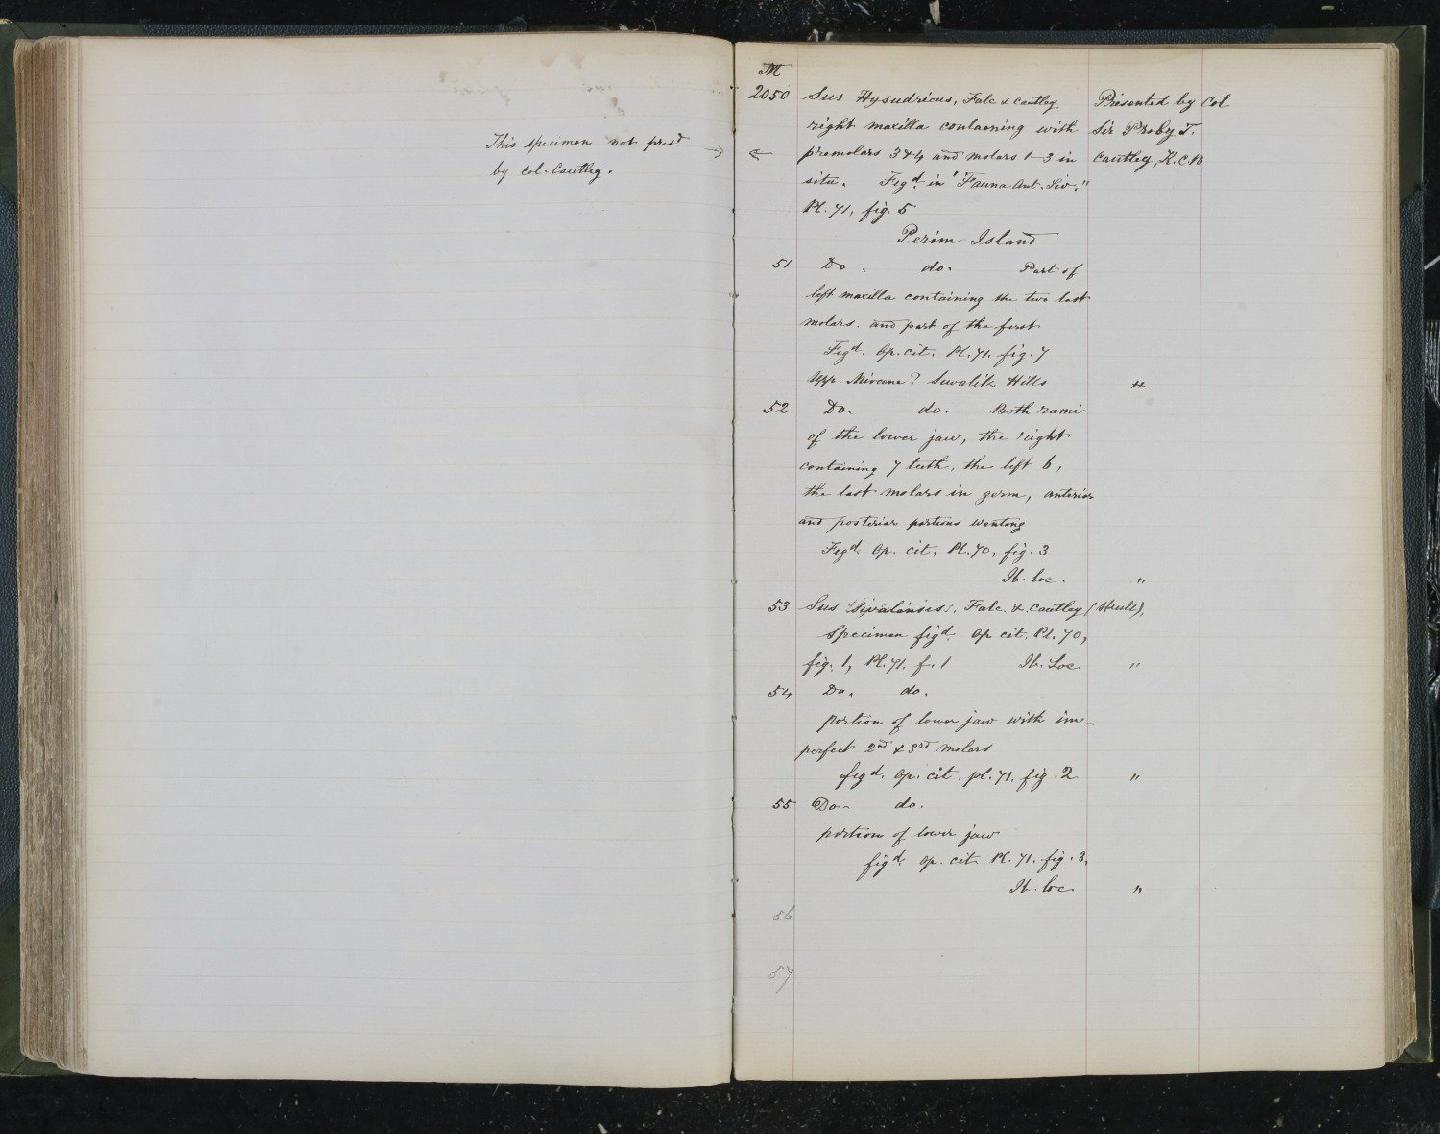 This specimen not presd →
by Col. Cautley.
M
2050 Sus Hysudricus, Falc & Cautley Presented by Col
right maxilla containing with Sir Proby T.
← premolars 3 & 4 and molars 1-3 in Cautley, K.C.B
situ. Figd. in "Fauna Ant. Siv."
Pl. 71, fig. 5
Perim Island
51 Do. do. Part of
left maxilla containing the two last
molars. and part of the first
Figd. Op. cit. Pl. 71. fig. 7
Upp. Miocene? Siwalik Hills "
52 Do. do. Both rami
of the lower jaw, the right
containing 7 teeth, the left 6,
the last molars in germ, anterior
and posterior portions wanting
Figd. Op. cit. Pl. 70, fig. 3
Ib. loc. "
53 Sus Sivalensis, Falc. & Cautley (Skull),
Specimen figd. Op cit. Pl. 70,
fig. 1, Pl. 71. f. 1 Ib. Loc "
54 Do. do.
portion of lower jaw with im-
perfect 2nd & 3rd molars
figd. Op. cit. pl. 71. fig 2 "
55 Do. do.
portion of lower jaw
figd. Op. cit Pl. 71. fig. 3.
Ib. loc "
56
57